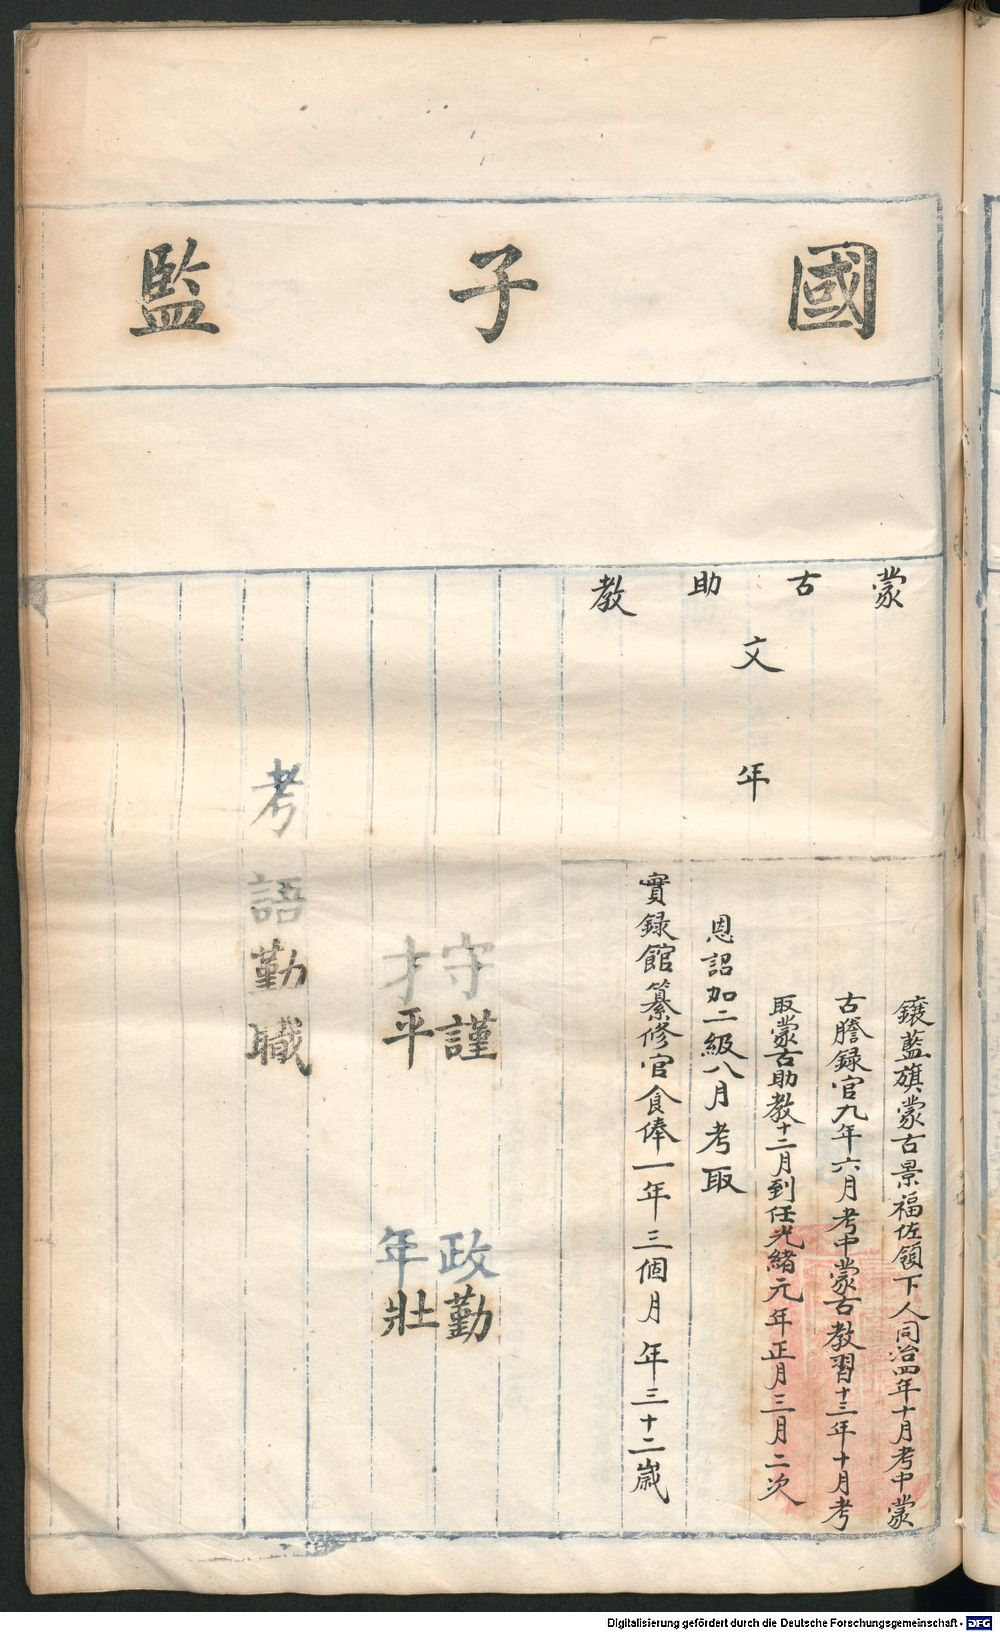 國子監
蒙古助教
文年
鑲藍旗蒙古景福佐領下人同治四年十月考中蒙
古謄録官九年六月考中蒙古教習十三年十月考
取蒙古助教十二月到任光緒元年正月三月二次
恩詔加二級八月考取
實録館纂修官食俸一年三個月年三十二歲
守謹 政勤
才平 年壯
考語勤職
Digitalisierung gefördert durch die Deutsche Forschungsgemeinschaft - DFG